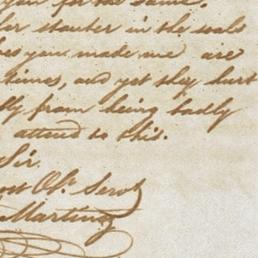 you for the same.
her stouter in the soals
es you made me are
times, and yet they hurt
ly from being badly
attend to this.
Sir.
ost Obt. Servt
Martiny